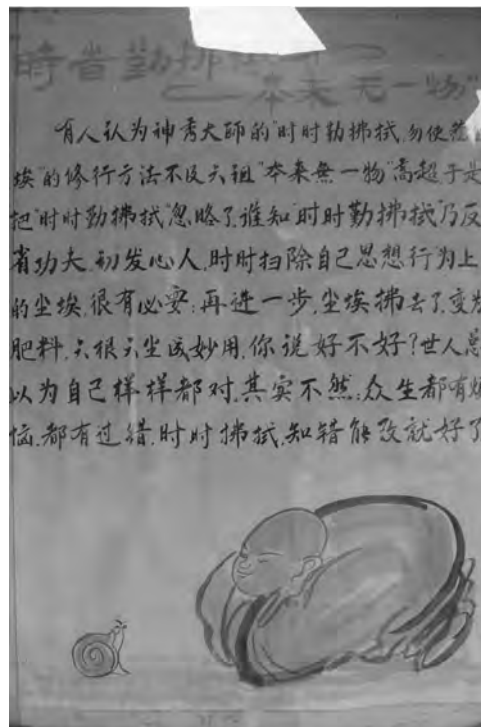 時省勤拂拭
"本来无一物"
有人认为神秀大师的"时时勤拂拭,勿使惹
埃"的修行方法不及六祖"本来無一物"高超于是
把"时时勤拂拭"忽略了,谁知"时时勤拂拭"乃反
省功夫,初发心人,时时扫除自己思想行为上
的尘埃,很有必要;再进一步,尘埃拂去了,变为
肥料,六根六尘成妙用,你说好不好?世人总
以为自己样样都对,其实不然,众生都有烦
恼,都有过错,时时拂拭,知错能改就好了